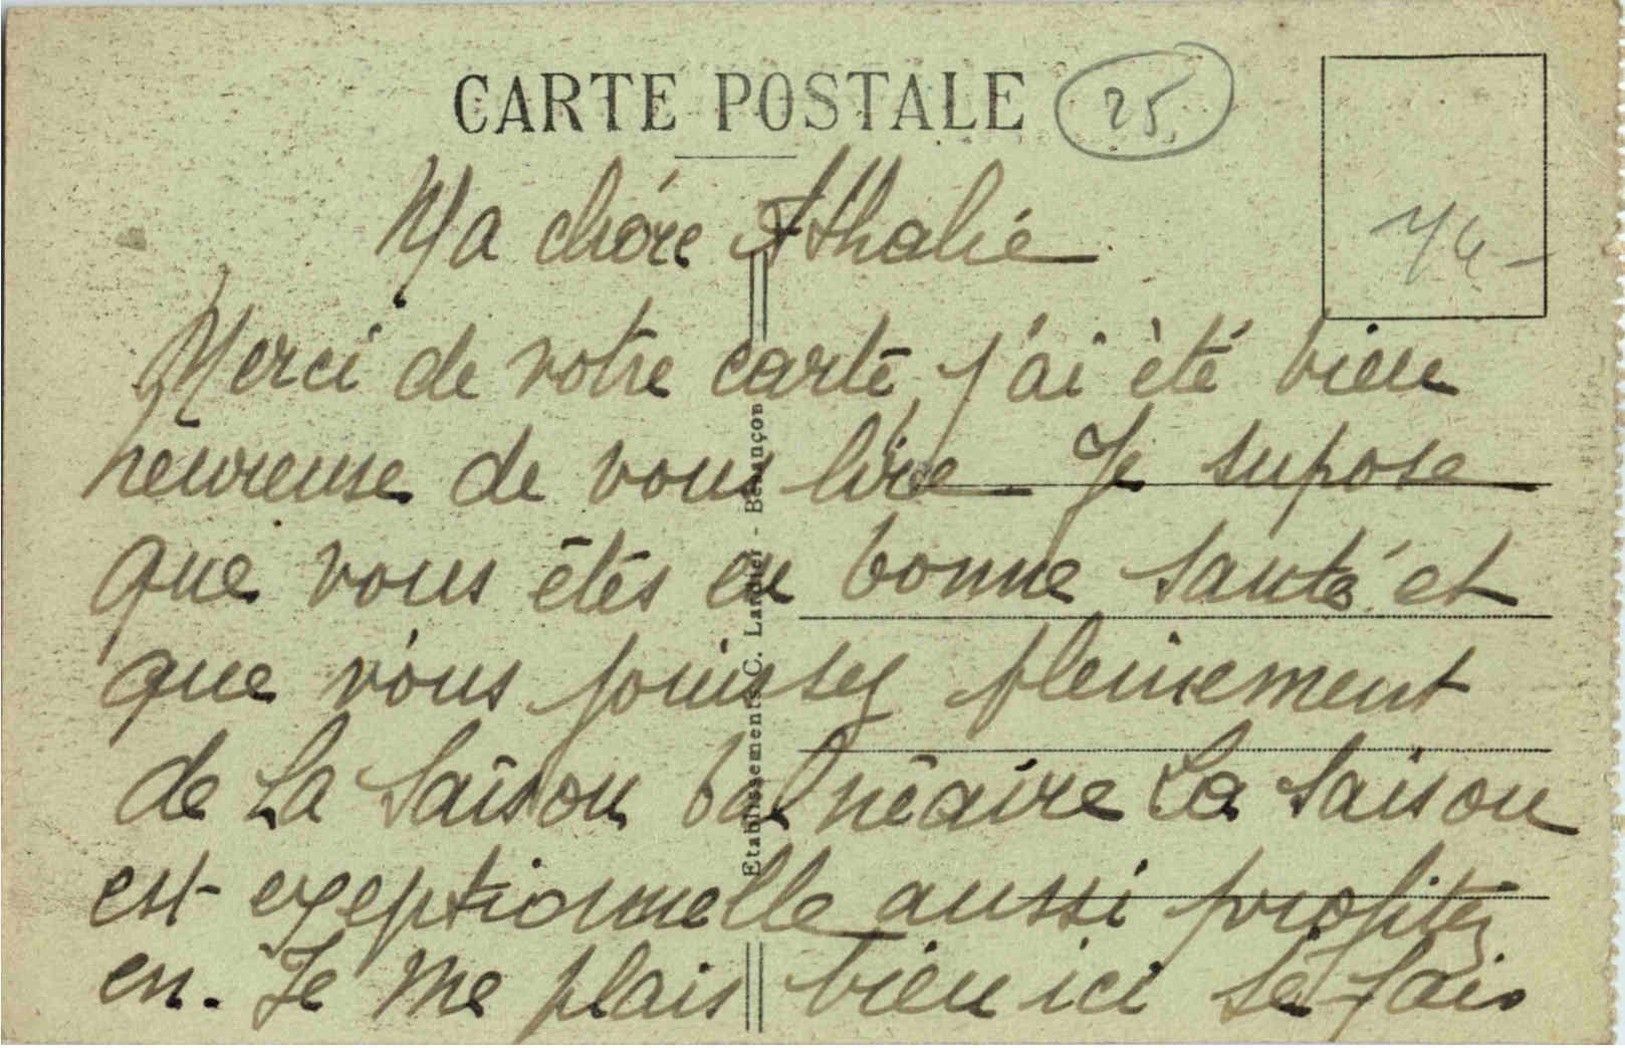 CARTE POSTALE
25
Ma chère Athalie
Merci de votre carte, j'ai èté bien
heureuse de vous lire. Je supose
que vous étés en bonne santé et
que vous jouissez pleinement
de La Saison balnéaire La Saison
est exeptionnelle aussi profitez
en. Je me plais bien ici Je fais
Etablissements C. Lardier - Besançon